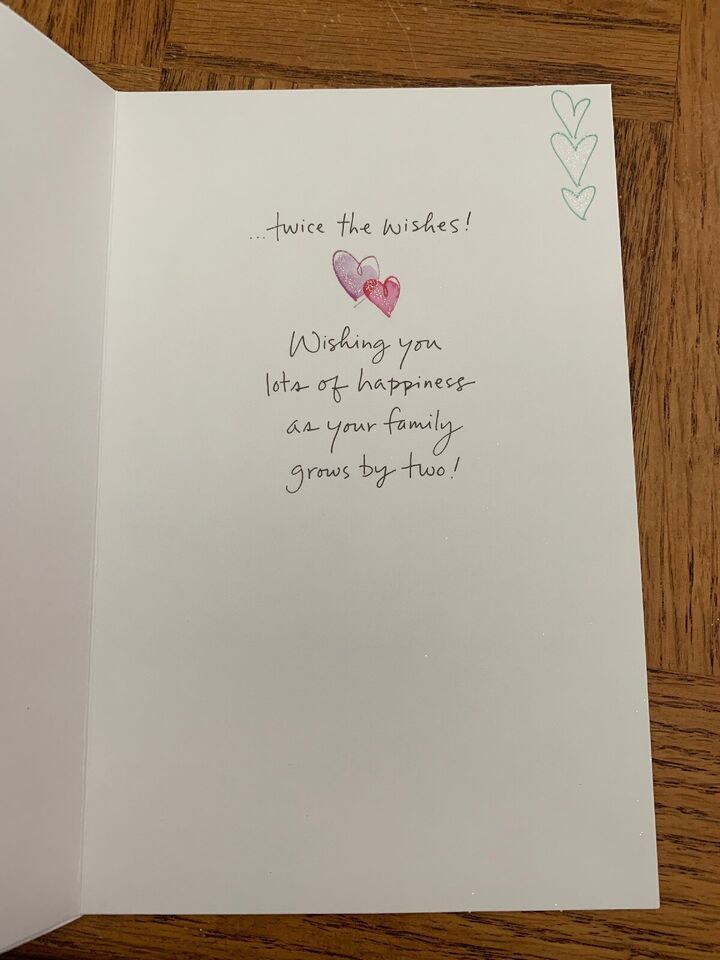 ...twice the wishes!
Wishing you
lots of happiness
as your family
grows by two!